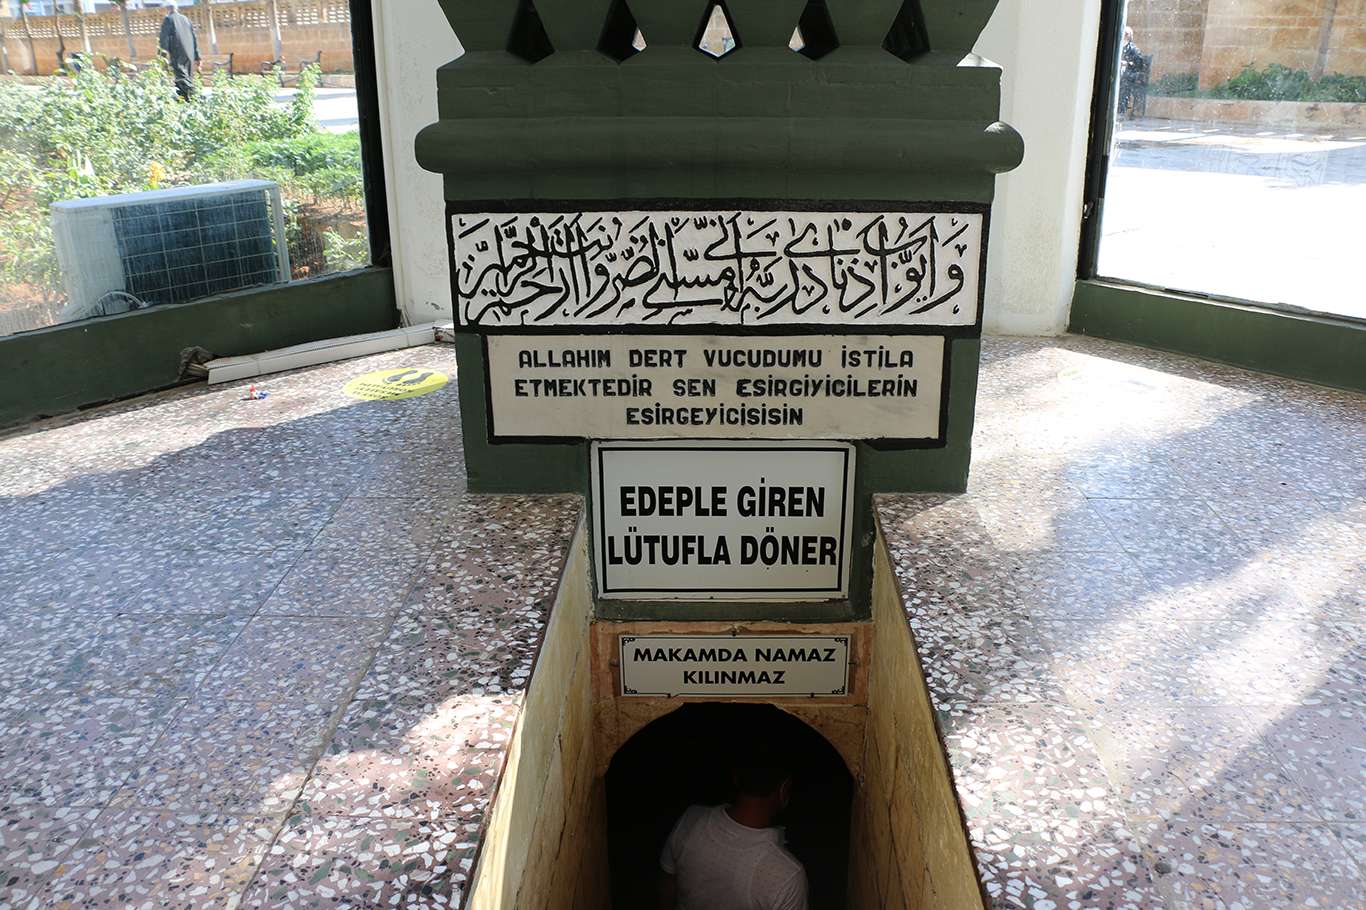 وأيوب إذ نادى ربه أني مسني الضر وأنت أرحم الراحمين
ALLAHIM DERT VUCUDUMU İSTİLA
ETMEKTEDİR SEN ESİRGİYİCİLERİN
ESİRGEYİCİSİSİN
EDEPLE GİREN
LÜTUFLA DÖNER
MAKAMDA NAMAZ
KILINMAZ